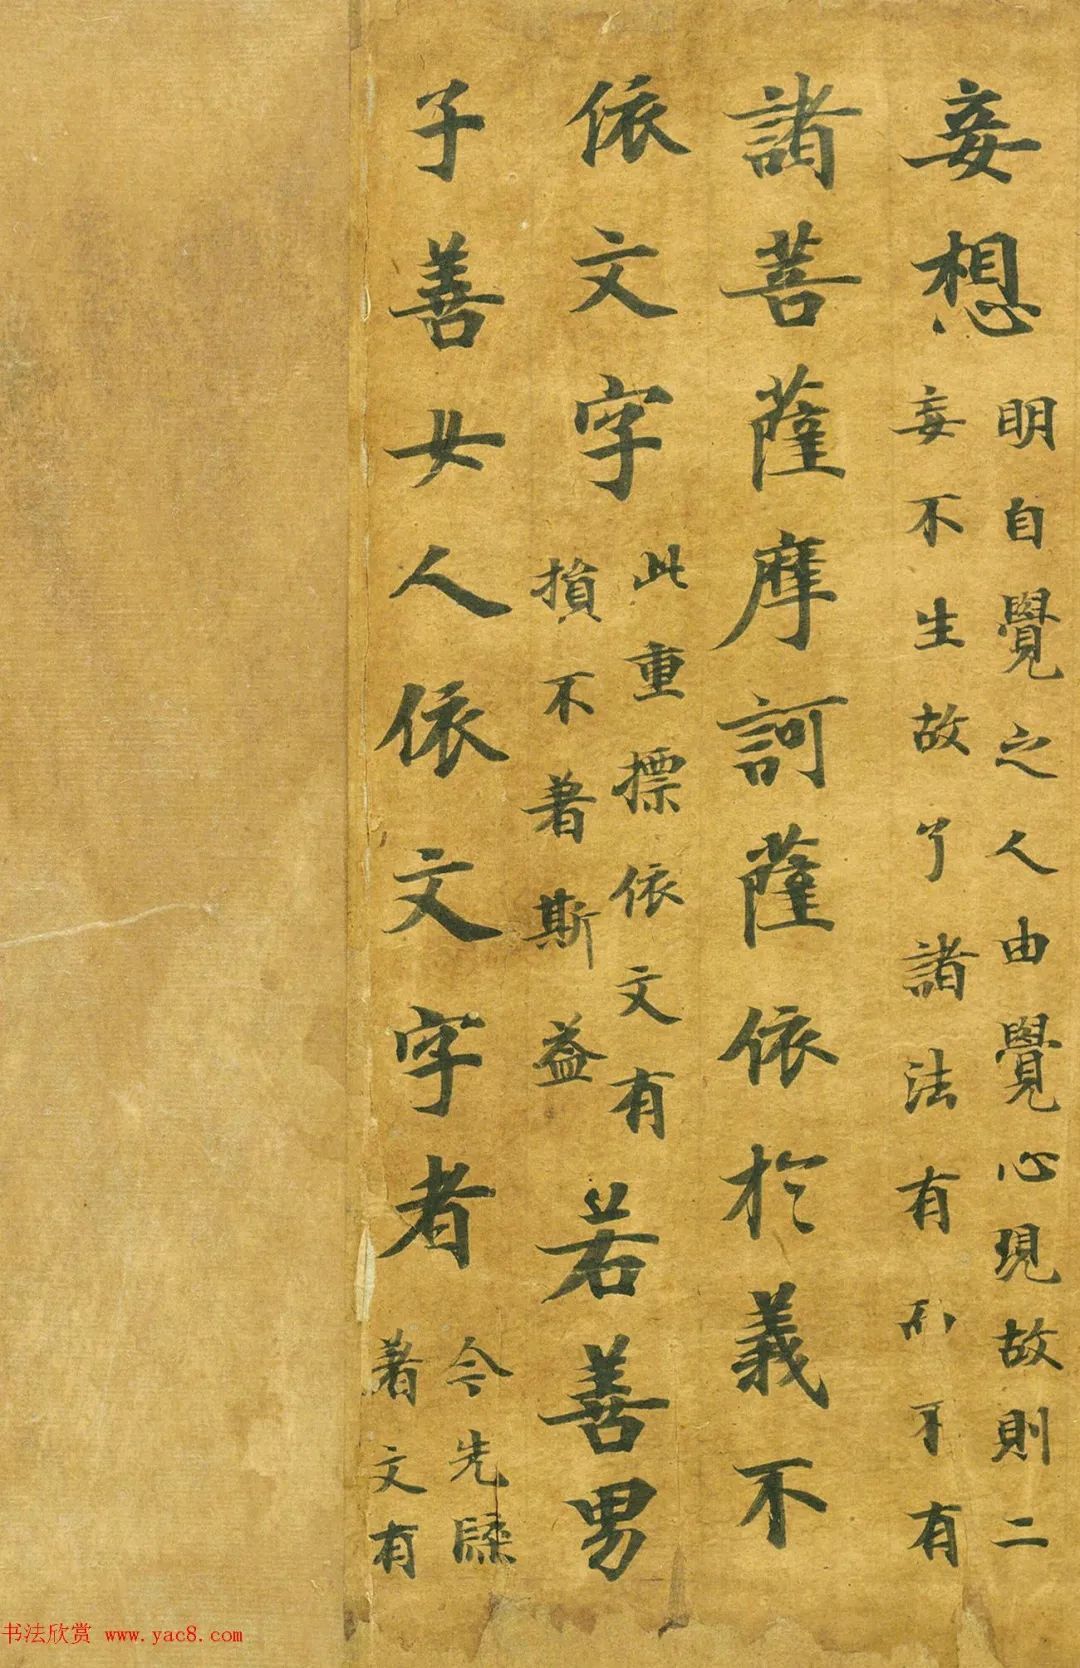 妄想
明自覺之人由覺心現故則二
妄不生故了諸法有而不有
諸菩薩摩訶薩依於義不
依文字
此重摽依文有
損不著斯益
若善男
子善女人依文字者
今先牒
著文有
书法欣赏 www.yac8.com